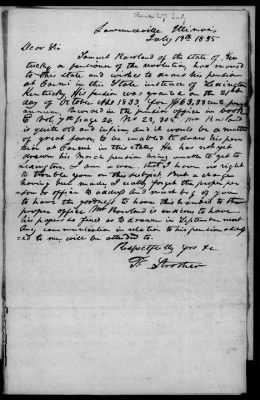 Lawrenceville Illinois,
July 13th 1835
Dear Sir
Samuel Rowland of the state of Ken-
tucky a pensioner of the revolution, has moved
to this state and wishes to draw his pension
at Carmi in this State instead of Lexington
Kentucky. His pension was granted on the 16th
day of October 1833 for $63,33 cents per
annum. Recorded in the pension office in book
E Vol. 7th page 26 No 23,
is quite old and infirm, and it would be a matter
of great favor to be enabled to draw his pen-
sion at Carmi in this state. He has not yet
drawn his March pension being unable to get to
Lexington. I am aware that I have no right
to trouble you on this subject. But a change
having been made I really forget the proper per-
son or office to address and must beg of you
to have the goodness to have this handed to the
proper office. Mr Rowland is anxious to have
his papers so fixed as to draw in September next
Any communication in relation to his pension address-
ed to me will be attended to.
Respectfully yrs &c
Strother